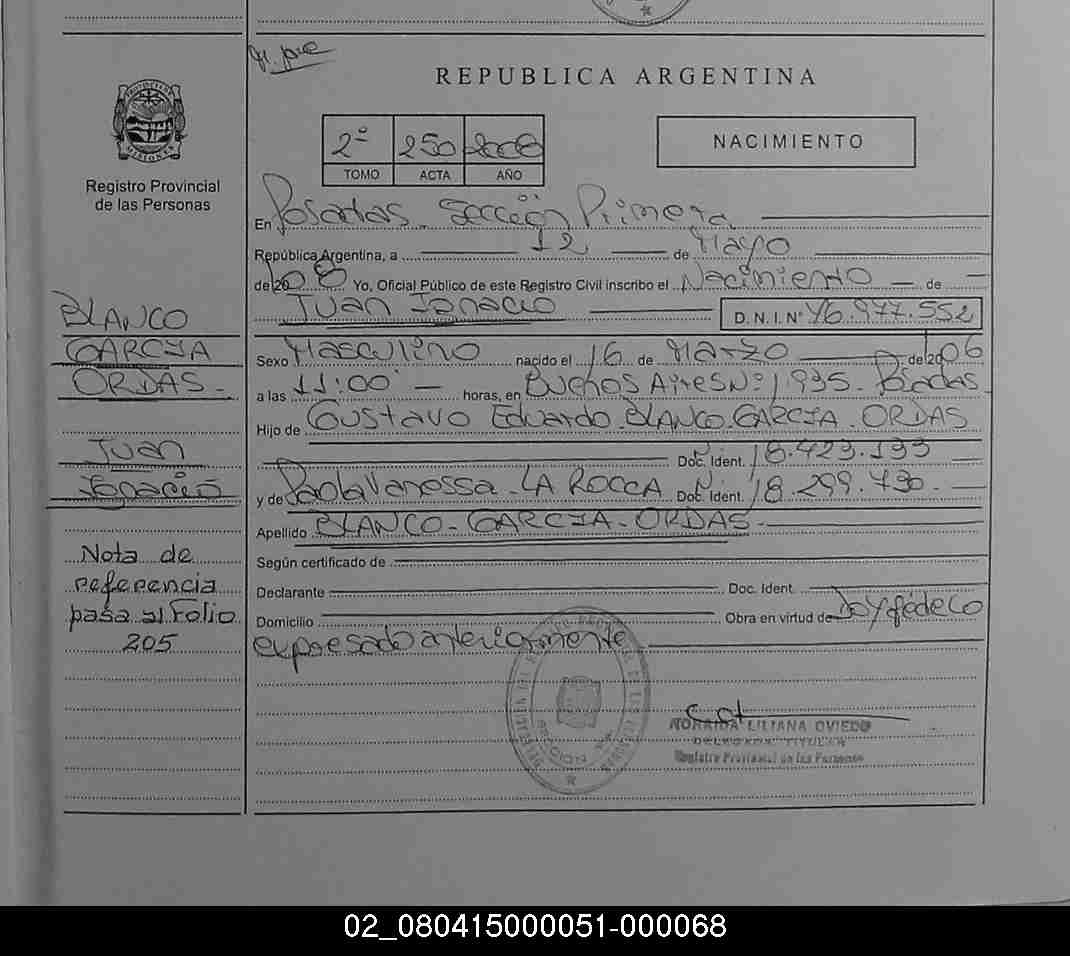 REPUBLICA ARGENTINA
2º 250 2008
TOMO ACTA AÑO
NACIMIENTO
Registro Provincial
de las Personas
BLANCO
GARCIA
ORDAS -
Juan
Ignacio
Nota de
referencia
pasa al Folio
205
En Posadas - Sección Primera
República Argentina, a 12 de Mayo
de 2008 Yo, Oficial Público de este Registro Civil inscribo el Nacimiento de
Juan Ignacio D.N.I. Nº 46.977.552
Sexo Masculino nacido el 16 de Marzo de 2006
a las 11:00 horas, en Buenos Aires Nº 1935 - Posadas
Hijo de Gustavo Eduardo BLANCO GARCIA - ORDAS
Doc. Ident. 18.423.133
y de Paola Vanessa - LA ROCCA Doc. Ident. 18.299.430 -
Apellido BLANCO - GARCIA - ORDAS -
Según certificado de
Declarante Doc. Ident.
Domicilio Obra en virtud de
expresado anteriormente
NORAIDA LILIANA OVIEDO
DELEGADA TITULAR
Registro Provincial de las Personas
02_080415000051-000068